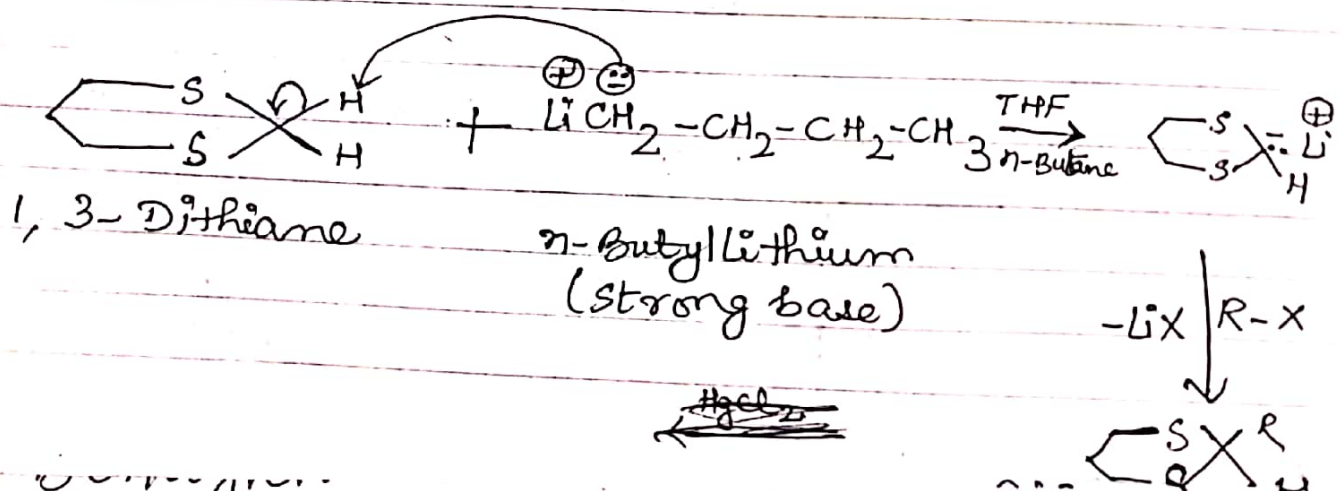 S H + ⊕ ⊖ Li CH2-CH2-CH2-CH3 THF n-Butane S ⊕ Li
S H S H
1, 3-Dithiane n-Butyl Lithium
(strong base)
-LiX R-X
HgCl2
S R